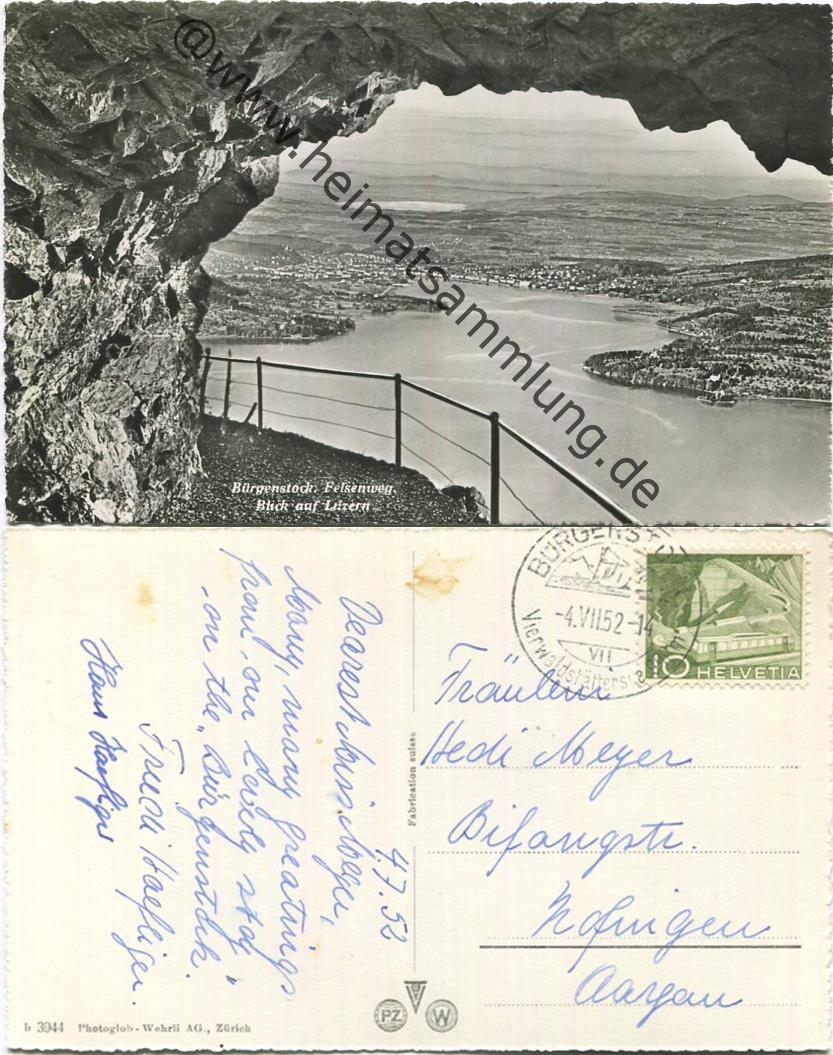 @www.heimatsammlung.de
Bürgenstock. Felsenweg.
Blick auf Luzern
BÜRGENSTOCK
-4.VII.52-14
VII
Vierwaldstättersee
10 HELVETIA
4.7.52
Dearest Miss Meyer,
Many, many greatings
from our lovely stay
on the "Bürgenstock."
Friedi Haefliger.
Hans Haefliger
Fabrication suisse
Fräulein
Hedi Meyer
Bifangstr.
Zofingen
Aargau
b 3944 Photoglob-Wehrli AG., Zürich
PZ W